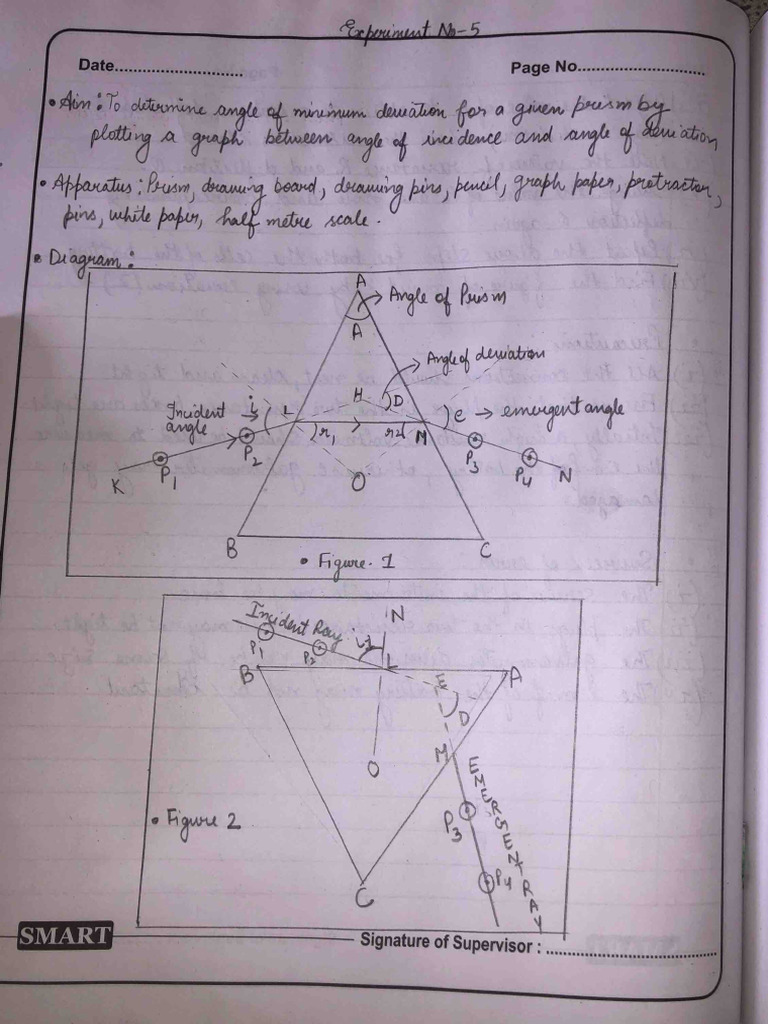 Experiment No-5
Date............................ Page No............................
• Aim: To determine angle of minimum deviation for a given prism by
plotting a graph between angle of incidence and angle of deviation
• Apparatus: Prism, drawing board, drawing pins, pencil, graph paper, protractor,
pins, white paper, half metre scale.
• Diagram:
A
Angle of Prism
A
Angle of deviation
H D
Incident angle
i L
r1 r2 M
e → emergent angle
P2 P3
K P1 P4 N
O
B C
• Figure. 1
N
Incident Ray
P1 P2 i L
B A
E
D
O M
EMERGENT RAY
P3
• Figure 2
P4
C
SMART
Signature of Supervisor : ............................